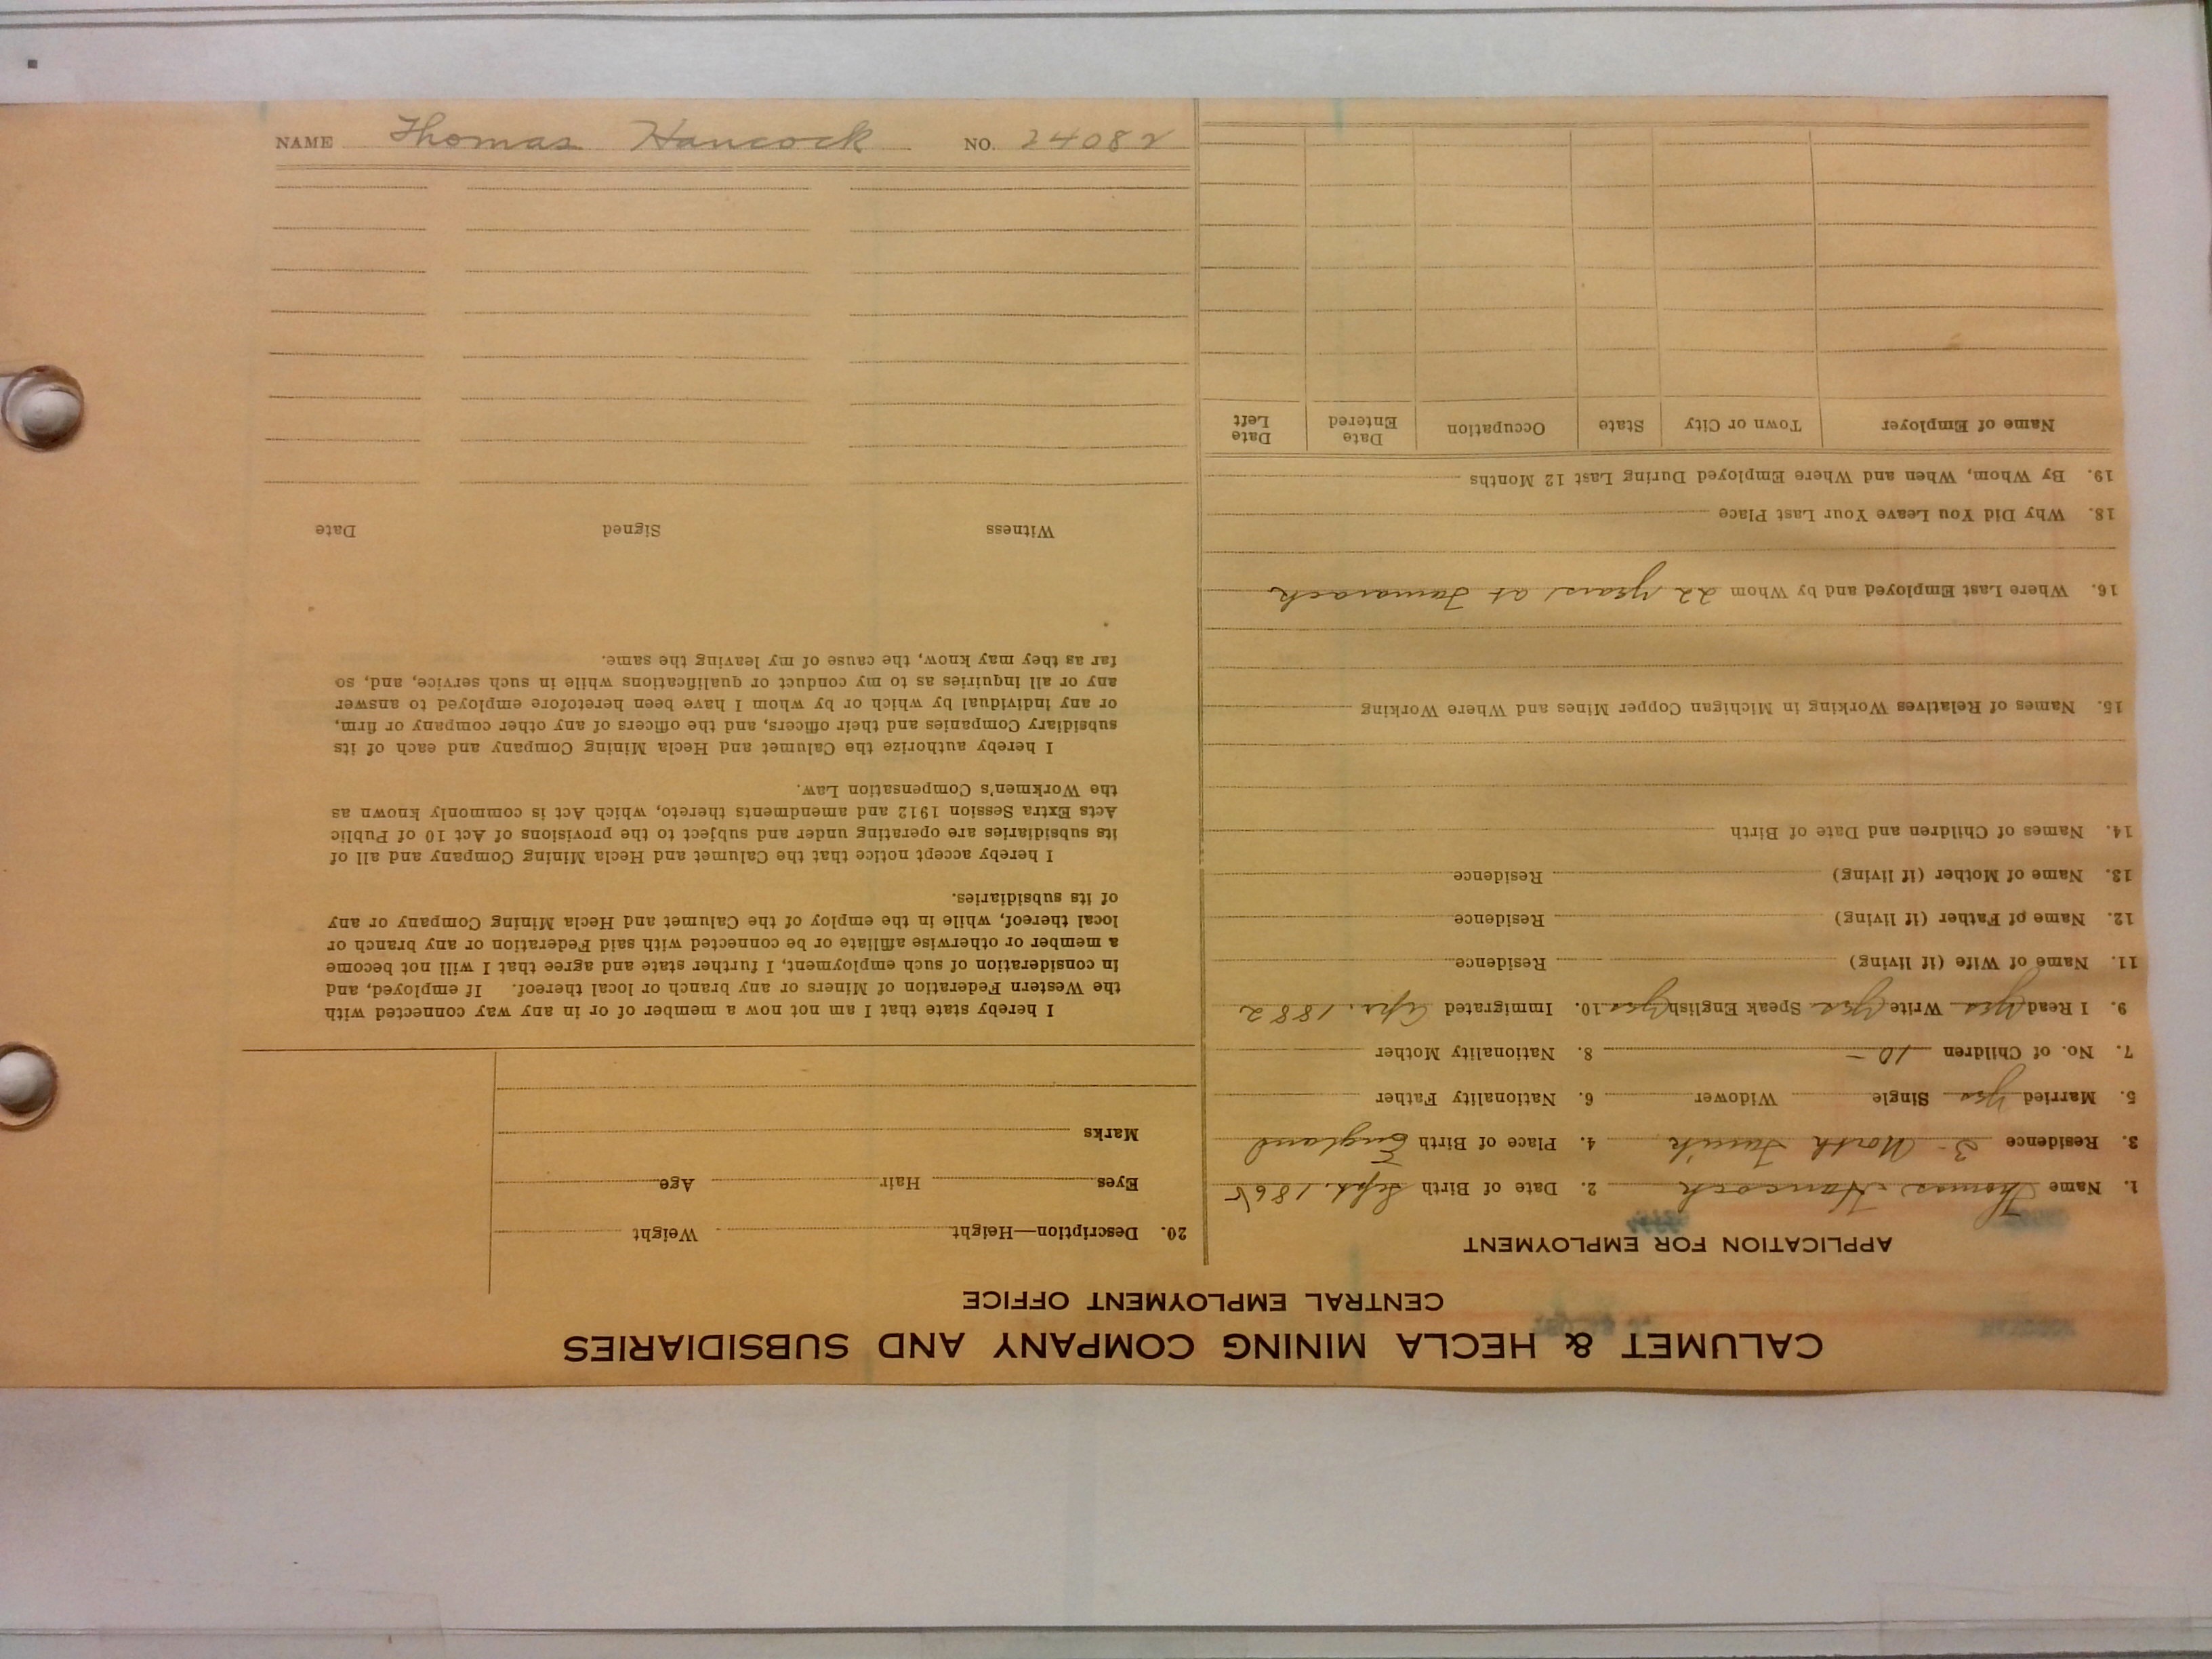 CALUMET & HECLA MINING COMPANY AND SUBSIDIARIES
CENTRAL EMPLOYMENT OFFICE
APPLICATION FOR EMPLOYMENT
1. Name Thomas Hancock 2. Date of Birth Sept. 1865
3. Residence 3 - North 4. Place of Birth England
5. Married yes Single Widower 6. Nationality Father
7. No. of Children 10 - 8. Nationality Mother
9. I Read yes Write yes Speak English yes 10. Immigrated Apr. 1882
11. Name of Wife (if living) Residence
12. Name of Father (if living) Residence
13. Name of Mother (if living) Residence
14. Names of Children and Date of Birth
15. Names of Relatives Working in Michigan Copper Mines and Where Working
16. Where Last Employed and by Whom 22 years at Tamarack
18. Why Did You Leave Your Last Place
19. By Whom, When and Where Employed During Last 12 Months
Name of Employer Town or City State Occupation Date Entered Date Left
20. Description—Height Weight
Eyes Hair Age
Marks
I hereby state that I am not now a member of or in any way connected with
the Western Federation of Miners or any branch or local thereof. If employed, and
in consideration of such employment, I further state and agree that I will not become
a member or otherwise affiliate or be connected with said Federation or any branch or
local thereof, while in the employ of the Calumet and Hecla Mining Company or any
of its subsidiaries.
I hereby accept notice that the Calumet and Hecla Mining Company and all of
its subsidiaries are operating under and subject to the provisions of Act 10 of Public
Acts Extra Session 1912 and amendments thereto, which Act is commonly known as
the Workmen's Compensation Law.
I hereby authorize the Calumet and Hecla Mining Company and each of its
subsidiary Companies and their officers, and the officers of any other company or firm,
or any individual by which or by whom I have been heretofore employed to answer
any or all inquiries as to my conduct or qualifications while in such service, and, so
far as they may know, the cause of my leaving the same.
Witness Signed Date
NAME Thomas Hancock NO. 24082